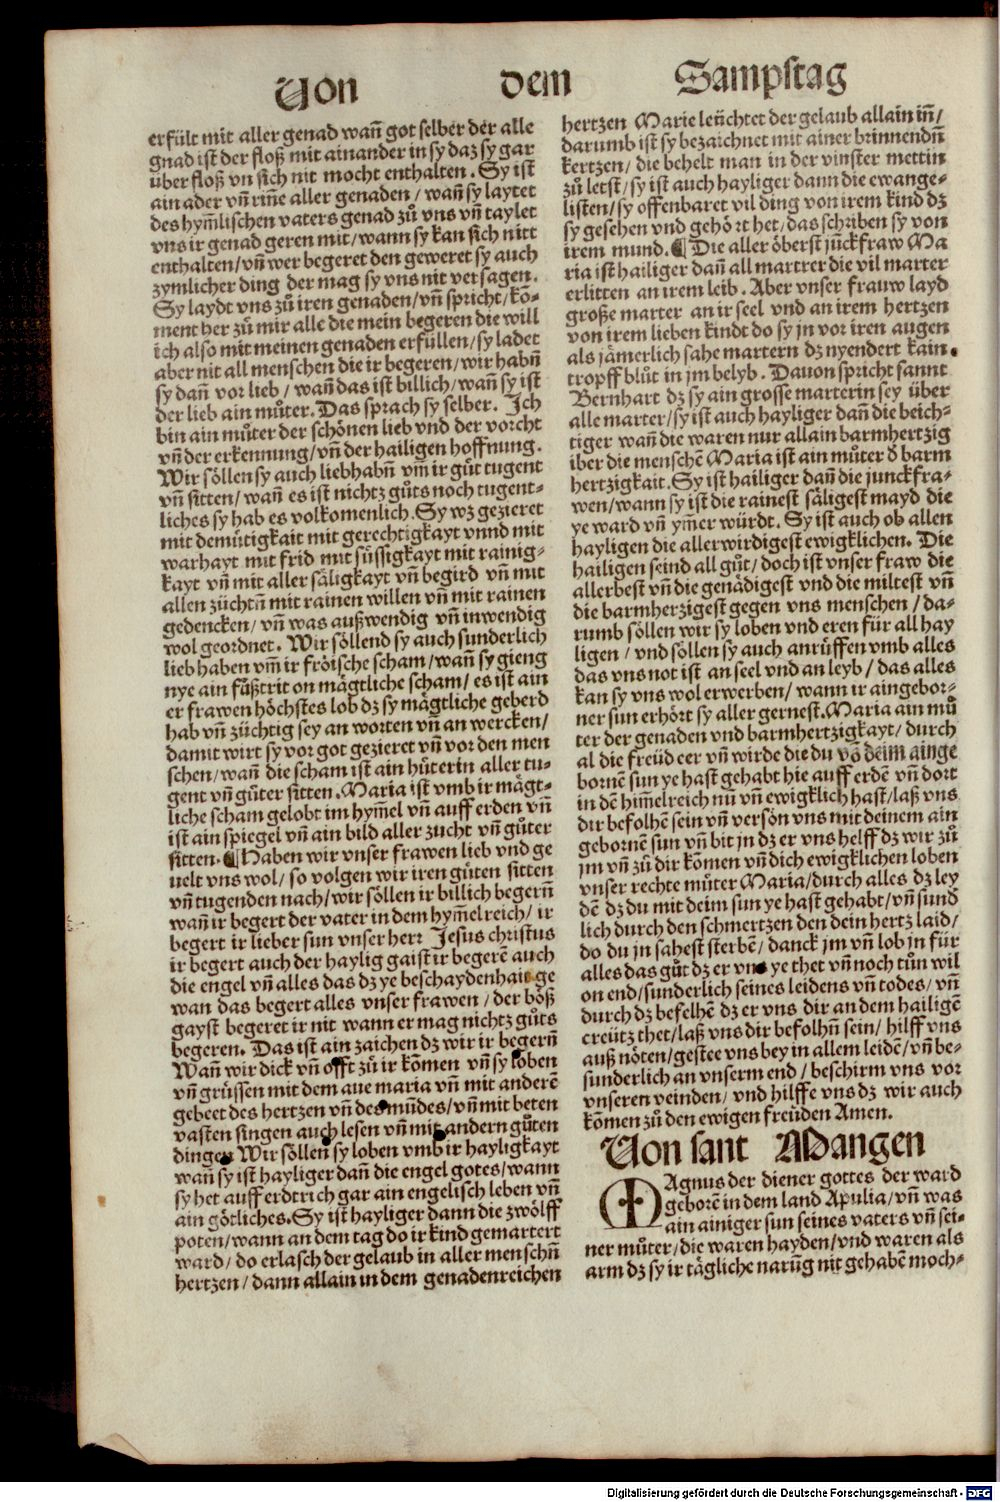 Von dem Sampstag
erfült mit aller genad wañ got selber der alle
gnad ist der floß mit ainander in sy daz sy gar
über floß vn sich nit mocht enthalten. Sy ist
ain ader vñ riñe aller genaden / wañ sy laytet
des hym̃lischen vaters genad zů vns vñ taylet
vns ir genad geren mit / wann sy kan sich nitt
enthalten / vñ wer begeret den geweret sy auch
zymlicher ding der mag sy vns nit versagen.
Sy laydt vns zů iren genaden / vñ spricht / kō-
ment her zů mir alle die mein begeren die will
ich also mit meinen genaden erfüllen / sy ladet
aber nit all menschen die ir begeren / wir habñ
sy dañ vor lieb / wañ das ist billich / wañ sy ist
der lieb ain můter. Das sprach sy selber. Ich
bin ain můter der schönen lieb vnd der vorcht
vñ der erkennung / vñ der hailigen hoffnung.
Wir söllen sy auch liebhabñ vm̃ ir gůt tugent
vñ sitten / wañ es ist nichtz gůts noch tugent-
liches sy hab es volkomenlich. Sy wz gezieret
mit demütigkait mit gerechtigkayt vnnd mit
warhayt mit frid mit süssigkayt mit rainig-
kayt vñ mit aller säligkayt vñ begird vñ mit
allen züchtñ mit rainen willen vñ mit rainen
gedencken / vñ was außwendig vñ inwendig
wol geordnet. Wir söllend sy auch sunderlich
lieb haben vm̃ ir fröische scham / wañ sy gieng
nye ain fůßtrit on mägtliche scham / es ist ain
er frawen höchstes lob dz sy mägtliche geberd
hab vñ züchtig sey an worten vñ an wercken /
damit wirt sy vor got gezieret vñ vor den men
schen / wañ die scham ist ain hůterin aller tu-
gent vñ gůter sitten. Maria ist vmb ir mägt-
liche scham gelobt im hym̃el vñ auff erden vñ
ist ain spiegel vñ ain bild aller zucht vñ gůter
sitten. ¶ Haben wir vnser frawen lieb vnd ge
uelt vns wol / so volgen wir iren gůten sitten
vñ tugenden nach / wir söllen ir billich begerñ
wañ ir begert der vater in dem hym̃elreich / ir
begert ir lieber sun vnser herr Jesus christus
ir begert auch der haylig gaist ir begerē auch
die engel vñ alles das dz ye beschaydenhait ge
wan das begert alles vnser frawen / der böß
gayst begeret ir nit wann er mag nichtz gůts
begeren. Das ist ain zaichen dz wir ir begerñ
Wañ wir dick vñ offt zů ir kōmen vñ sy loben
vñ grüssen mit dem aue maria vñ mit anderē
gebeet des hertzen vñ des mūdes / vñ mit beten
vasten singen auch lesen vñ mit andern gůten
dingen Wir söllen sy loben vmb ir hayligkayt
wañ sy ist hayliger dañ die engel gotes / wann
sy het auff erdtrich gar ain engelisch leben vñ
ain götliches. Sy ist hayliger dann die zwölff
poten / wann an dem tag do ir kind gemartert
ward / do erlasch der gelaub in aller menschñ
hertzen / dann allain in dem genadenreichen
hertzen Marie leüchtet der gelaub allain iñ /
darumb ist sy bezaichnet mit ainer brinnendñ
kertzen / die behelt man in der vinster mettin
zů letst / sy ist auch hayliger dann die ewange-
listen / sy offenbaret vil ding von irem kind dz
sy gesehen vnd gehört het / das schriben sy von
irem mund. ¶ Die aller öberst jūckfraw Ma
ria ist hailiger dañ all martrer die vil marter
erlitten an irem leib. Aber vnser frauw layd
große marter an ir seel vnd an irem hertzen
von irem lieben kindt do sy jn vor iren augen
als jämerlich sahe martern dz nyendert kain
tropff blůt in jm belyb. Dauon spricht sannt
Bernhart dz sy ain grosse marterin sey über
alle marter / sy ist auch hayliger dañ die beich-
tiger wañ die waren nur allain barmhertzig
iber die menschē Maria ist ain můter d̄ barm
hertzigkait. Sy ist hailiger dañ die junckfra-
wen / wann sy ist die rainest säligest mayd die
ye ward vñ ym̃er würdt. Sy ist auch ob allen
hayligen die allerwirdigest ewigklichen. Die
hailigen seind all gůt / doch ist vnser fraw die
allerbest vñ die genädigest vnd die miltest vñ
die barmherzigest gegen vns menschen / da-
rumb söllen wir sy loben vnd eren für all hay
ligen / vnd söllen sy auch anrüffen vmb alles
das vns not ist an seel vnd an leyb / das alles
kan sy vns wol erwerben / wann ir aingebor-
ner sun erhört sy aller gernest. Maria ain mů
ter der genaden vnd barmhertzigkayt / durch
al die freüd eer vñ wirde die du vō deim ainge
bornē sun ye hast gehabt hie auff erdē vñ dort
in dē him̃elreich nū vñ ewigklich hast / laß vns
dir befolhē sein vñ versön vns mit deinem ain
gebornē sun vñ bit jn dz er vns helff dz wir zů
jm vñ zů dir kōmen vñ dich ewigklichen loben
vnser rechte můter Maria / durch alles dz ley
dē dz du mit deim sun ye hast gehabt / vñ sund
lich durch den schmertzen den dein hertz laid /
do du jn sahest sterbē / danck jm vñ lob jn für
alles das gůt dz er vns ye thet vñ noch tůn wil
on end / sunderlich seines leidens vñ todes / vñ
durch dz befelhē dz er vns dir an dem hailigē
creütz thet / laß vns dir befolhñ sein / hilff vns
auß nöten / gestee vns bey in allem leidē / vñ be-
sunderlich an vnserm end / beschirm vns vor
vnseren veinden / vnd hilffe vns dz wir auch
kōmen zů den ewigen freüden Amen.
Von sant Mangen
MAgnus der diener gottes der ward
geborē in dem land Apulia / vñ was
ain ainiger sun seines vaters vñ sei-
ner můter / die waren hayden / vnd waren als
arm dz sy ir tägliche narūg nit gehabē moch-
Digitalisierung gefördert durch die Deutsche Forschungsgemeinschaft - DFG